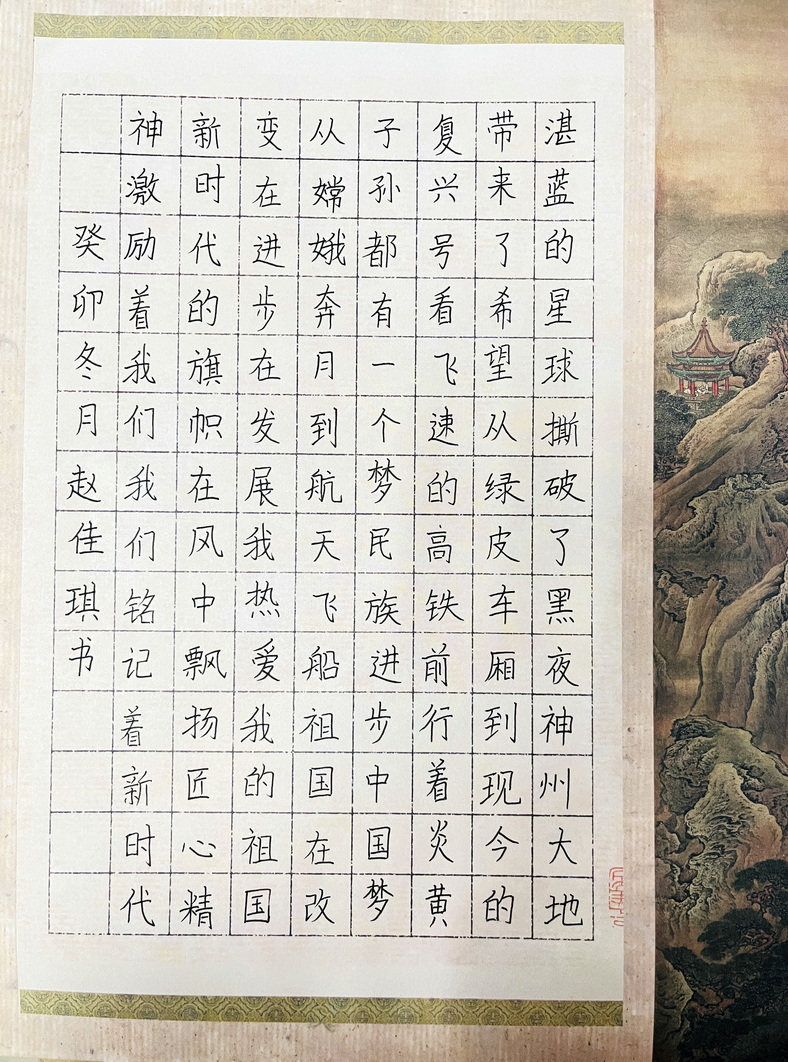 湛蓝的星球撕破了黑夜神州大地
带来了希望从绿皮车厢到现今的
复兴号看飞速的高铁前行着炎黄
子孙都有一个梦民族进步中国梦
从嫦娥奔月到航天飞船祖国在改
变在进步在发展我热爱我的祖国
新时代的旗帜在风中飘扬匠心精
神激励着我们我们铭记着新时代
癸卯冬月赵佳琪书